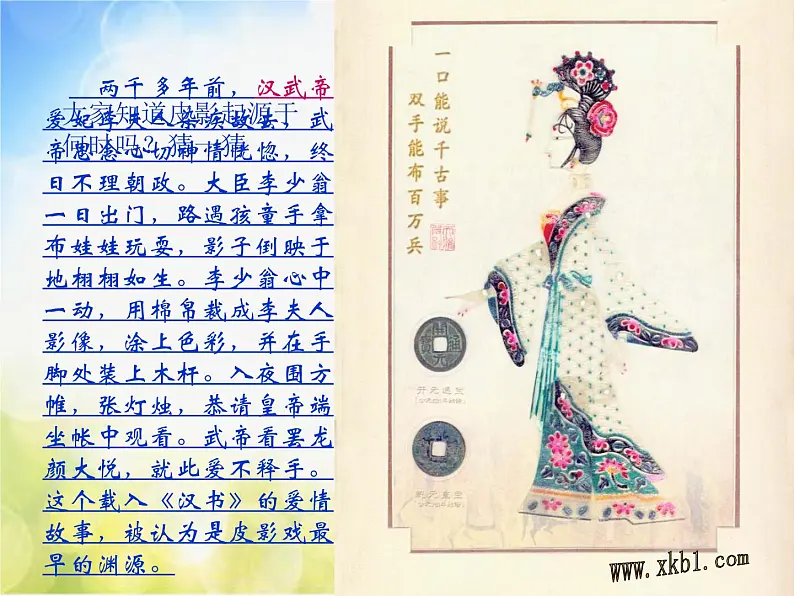 两千多年前，汉武帝
爱妃李夫人染疾故去，武
帝思念心切神情恍惚，终
日不理朝政。大臣李少翁
一日出门，路遇孩童手拿
布娃娃玩耍，影子倒映于
地栩栩如生。李少翁心中
一动，用棉帛裁成李夫人
影像，涂上色彩，并在手
脚处装上木杆。入夜围方
帷，张灯烛，恭请皇帝端
坐帐中观看。武帝看罢龙
颜大悦，就此爱不释手。
这个载入《汉书》的爱情
故事，被认为是皮影戏最
早的渊源。
大家知道皮影起源于
何时吗？猜一猜
一口能说千古事
双手能布百万兵
开元通宝
乾元重宝
www.xkb1.com